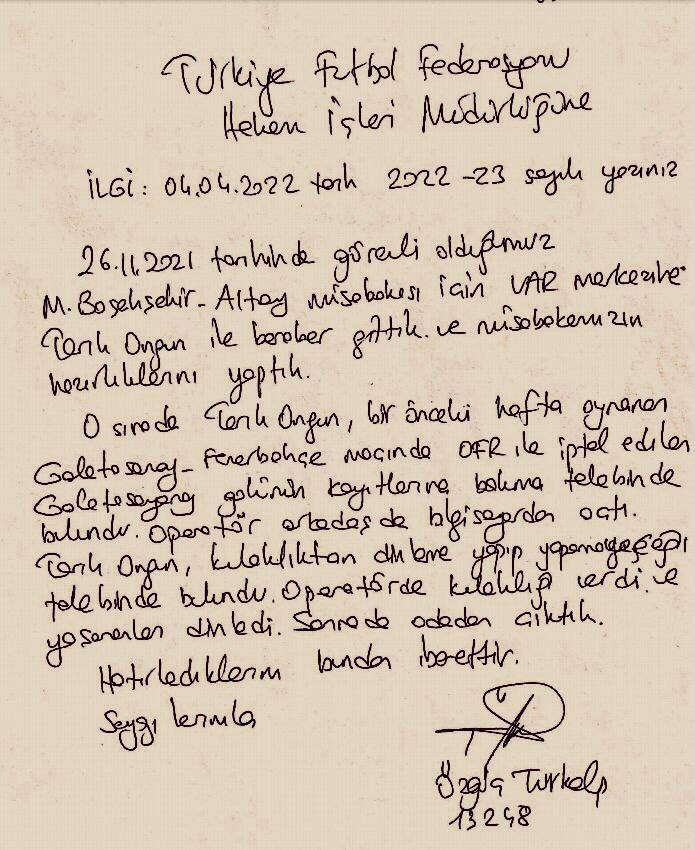 Türkiye Futbol Federasyonu
Hakem İşleri Müdürlüğüne
İLGİ: 04.04.2022 tarih 2022-23 sayılı yazınız
26.11.2021 tarihinde görevli olduğumuz
M. Başakşehir - Altay müsabakası için VAR merkezine
Tarık Ongun ile beraber gittik ve müsabakamızın
hazırlıklarını yaptık.
O sırada Tarık Ongun, bir önceki hafta oynanan
Galatasaray - Fenerbahçe maçında OFR ile iptal edilen
Galatasaray golünün kayıtlarına bakma talebinde
bulundu. Operatör arkadaş da bilgisayardan açtı.
Tarık Ongun, kulaklıktan dinleme yapıp yapamayacağı
talebinde bulundu. Operatörde kulaklığı verdi ve
yaşananları dinledi. Sonrada odadan çıktık.
Hatırladıklarım bundan ibarettir.
Saygılarımla
Türkalp
13248